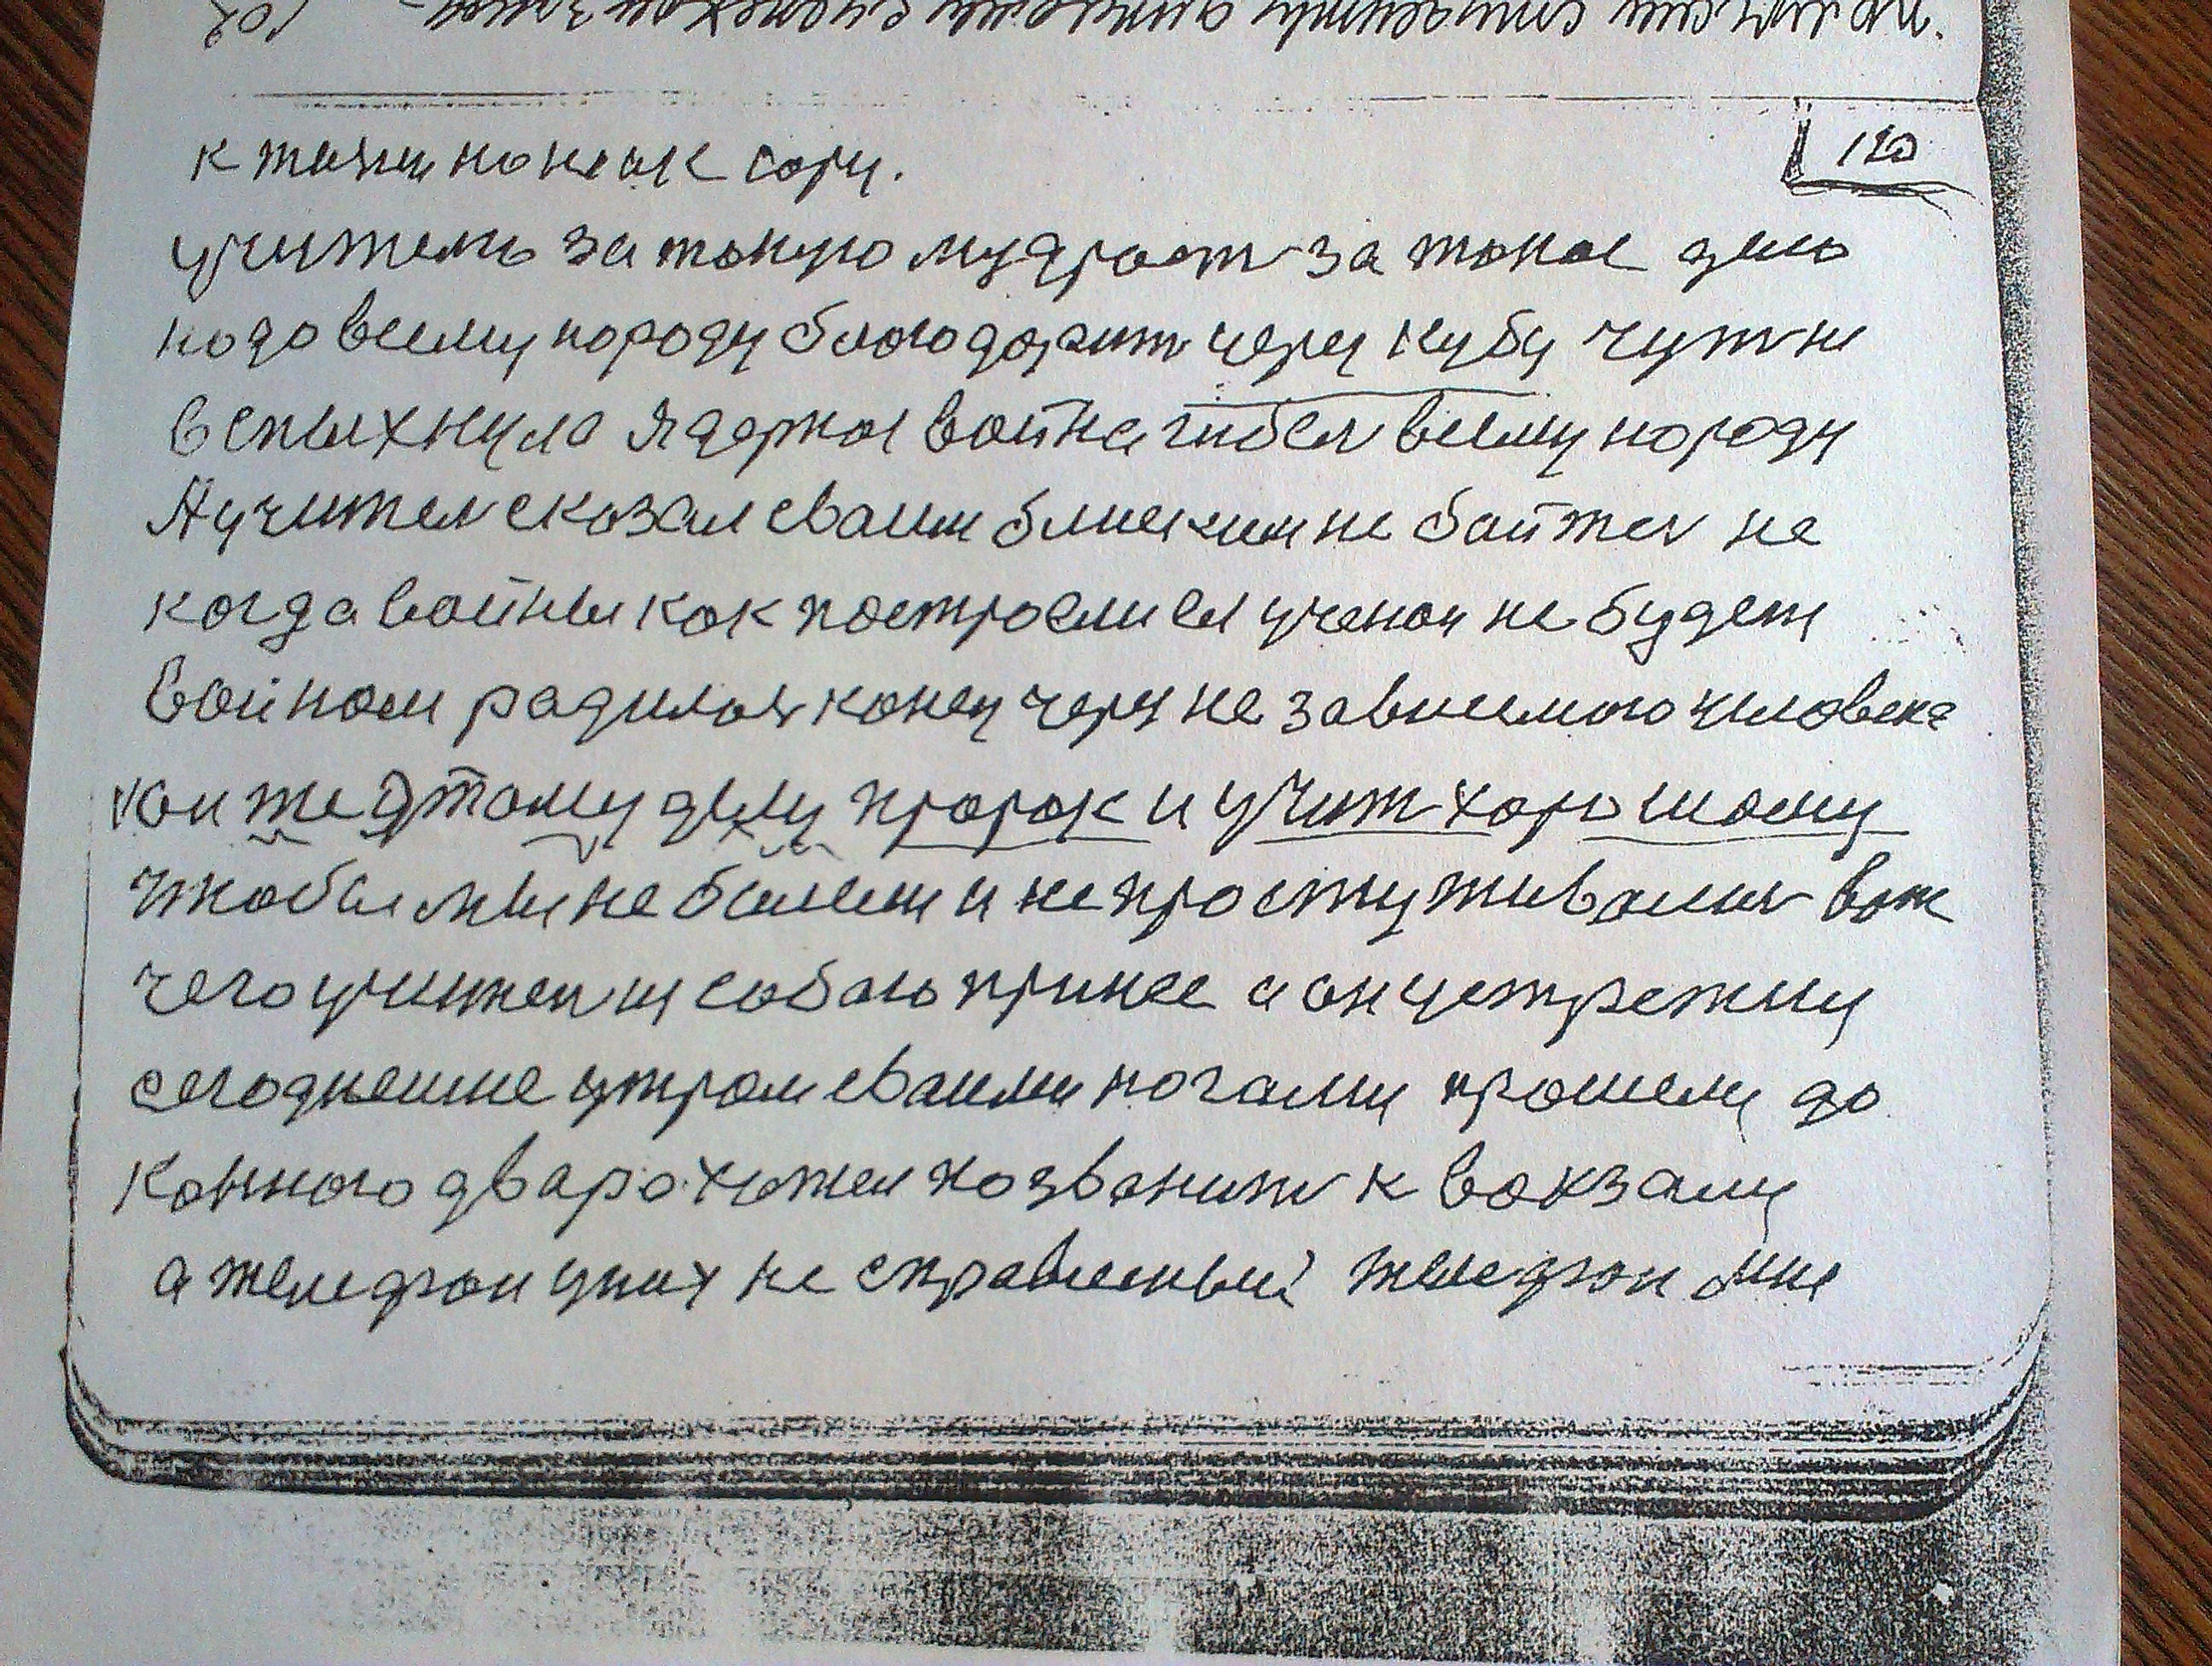 120
учитель за токую мудрост за токое дело
надо всему народу благодарит через кубу чут не
вспыхнула ядерноя война гибел всему народу
А учител сказал сваим близким не байтес не
когда войны как построелися ученои не будет
войнам радился конец через не зависимого человека
он же этому делу пророк и учит хорошому
чтобы мы не болели и не простуживались вот
чего учител и собою принес а он
сегоднешне утром сваими ногами прошели до
Конного двара хател позвонит к вокзалу
а телефон уних не справленый телефон мне